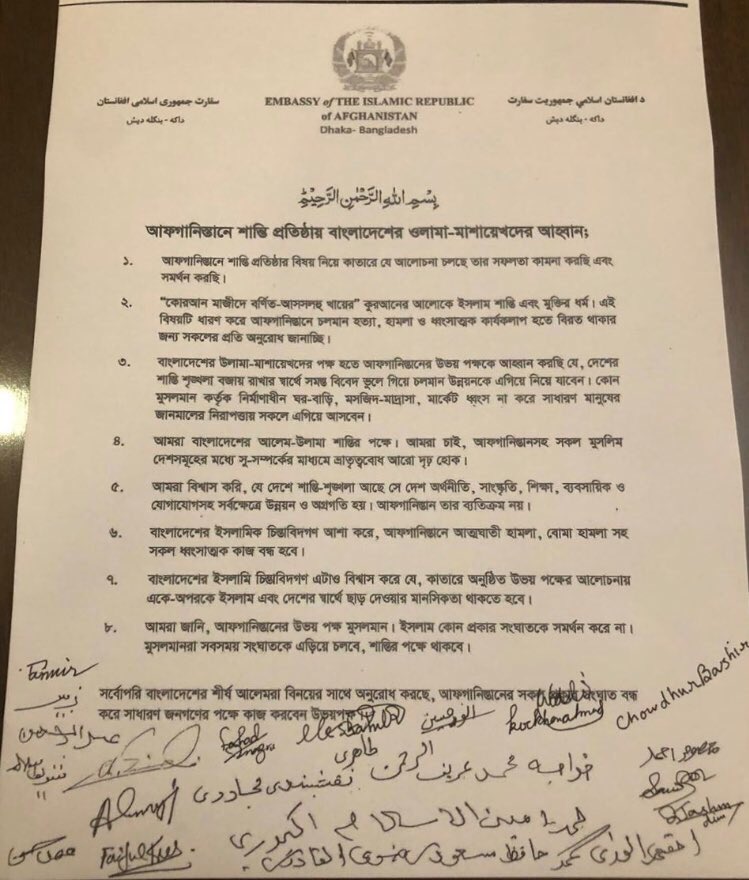 سفارت جمهوری اسلامی افغانستان
داکه - بنگله دیش
EMBASSY of THE ISLAMIC REPUBLIC
of AFGHANISTAN
Dhaka- Bangladesh
د افغانستان اسلامي جمهوریت سفارت
داکه - بنگله دیش
بِسْمِ اللهِ الرَّحْمٰنِ الرَّحِيْمِ
আফগানিস্তানে শান্তি প্রতিষ্ঠায় বাংলাদেশের ওলামা-মাশায়েখদের আহ্বান;
১. আফগানিস্তানে শান্তি প্রতিষ্ঠার বিষয় নিয়ে কাতারে যে আলোচনা চলছে তার সফলতা কামনা করছি এবং
সমর্থন করছি।
২. “কোরআন মাজীদে বর্ণিত-আসসলহু খায়ের” কুরআনের আলোকে ইসলাম শান্তি এবং মুক্তির ধর্ম। এই
বিষয়টি ধারণ করে আফগানিস্তানে চলমান হত্যা, হামলা ও ধ্বংসাত্মক কার্যকলাপ হতে বিরত থাকার
জন্য সকলের প্রতি অনুরোধ জানাচ্ছি।
৩. বাংলাদেশের উলামা-মাশায়েখদের পক্ষ হতে আফগানিস্তানের উভয় পক্ষকে আহ্বান করছি যে, দেশের
শান্তি শৃঙ্খলা বজায় রাখার স্বার্থে সমস্ত বিবেদ ভুলে গিয়ে চলমান উন্নয়নকে এগিয়ে নিয়ে যাবেন। কোন
মুসলমান কর্তৃক নির্মাণাধীন ঘর-বাড়ি, মসজিদ-মাদ্রাসা, মার্কেট ধ্বংস না করে সাধারণ মানুষের
জানমালের নিরাপত্তায় সকলে এগিয়ে আসবেন।
৪. আমরা বাংলাদেশের আলেম-উলামা শান্তির পক্ষে। আমরা চাই, আফগানিস্তানসহ সকল মুসলিম
দেশসমূহের মধ্যে সু-সম্পর্কের মাধ্যমে ভ্রাতৃত্ববোধ আরো দৃঢ় হোক।
৫. আমরা বিশ্বাস করি, যে দেশে শান্তি-শৃঙ্খলা আছে সে দেশ অর্থনীতি, সাংস্কৃতি, শিক্ষা, ব্যবসায়িক ও
যোগাযোগসহ সর্বক্ষেত্রে উন্নয়ন ও অগ্রগতি হয়। আফগানিস্তান তার ব্যতিক্রম নয়।
৬. বাংলাদেশের ইসলামিক চিন্তাবিদগণ আশা করে, আফগানিস্তানে আত্মঘাতী হামলা, বোমা হামলা সহ
সকল ধ্বংসাত্মক কাজ বন্ধ হবে।
৭. বাংলাদেশের ইসলামি চিন্তাবিদগণ এটাও বিশ্বাস করে যে, কাতারে অনুষ্ঠিত উভয় পক্ষের আলোচনায়
একে-অপরকে ইসলাম এবং দেশের স্বার্থে ছাড় দেওয়ার মানসিকতা থাকতে হবে।
৮. আমরা জানি, আফগানিস্তানের উভয় পক্ষ মুসলমান। ইসলাম কোন প্রকার সংঘাতকে সমর্থন করে না।
মুসলমানরা সবসময় সংঘাতকে এড়িয়ে চলবে, শান্তির পক্ষে থাকবে।
সর্বোপরি বাংলাদেশের শীর্ষ আলেমরা বিনয়ের সাথে অনুরোধ করছে, আফগানিস্তানের সকল সংঘাত বন্ধ
করে সাধারণ জনগণের পক্ষে কাজ করবেন উভয়পক্ষ
Chowdhur Bashir
خواجه محمد عريف الرحمن
نقشبندی مجددی